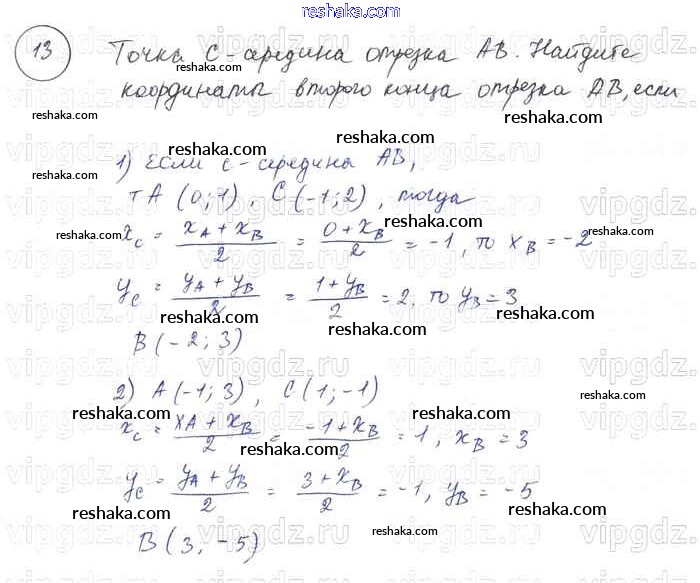 reshaka.com
13 Точка C - середина отрезка AB. Найдите
координаты второго конца отрезка AB, если
reshaka.com reshaka.com
1) Если C - середина AB,
reshaka.com
т A (0; 1), C (-1; 2), тогда
reshaka.com
x_C = (x_A + x_B)/2 = (0 + x_B)/2 = -1, то x_B = -2
reshaka.com reshaka.com
y_C = (y_A + y_B)/2 = (1 + y_B)/2 = 2, то y_B = 3
reshaka.com reshaka.com reshaka.com
B (-2; 3)
reshaka.com
2) A (-1; 3), C (1; -1)
reshaka.com reshaka.com
x_C = (xA + x_B)/2 = (-1 + x_B)/2 = 1, x_B = 3
reshaka.com reshaka.com
y_C = (y_A + y_B)/2 = (3 + x_B)/2 = -1, y_B = -5
reshaka.com
B (3, -5)
reshaka.com reshaka.com
vipgdz.ru vipgdz.ru vipgdz.ru